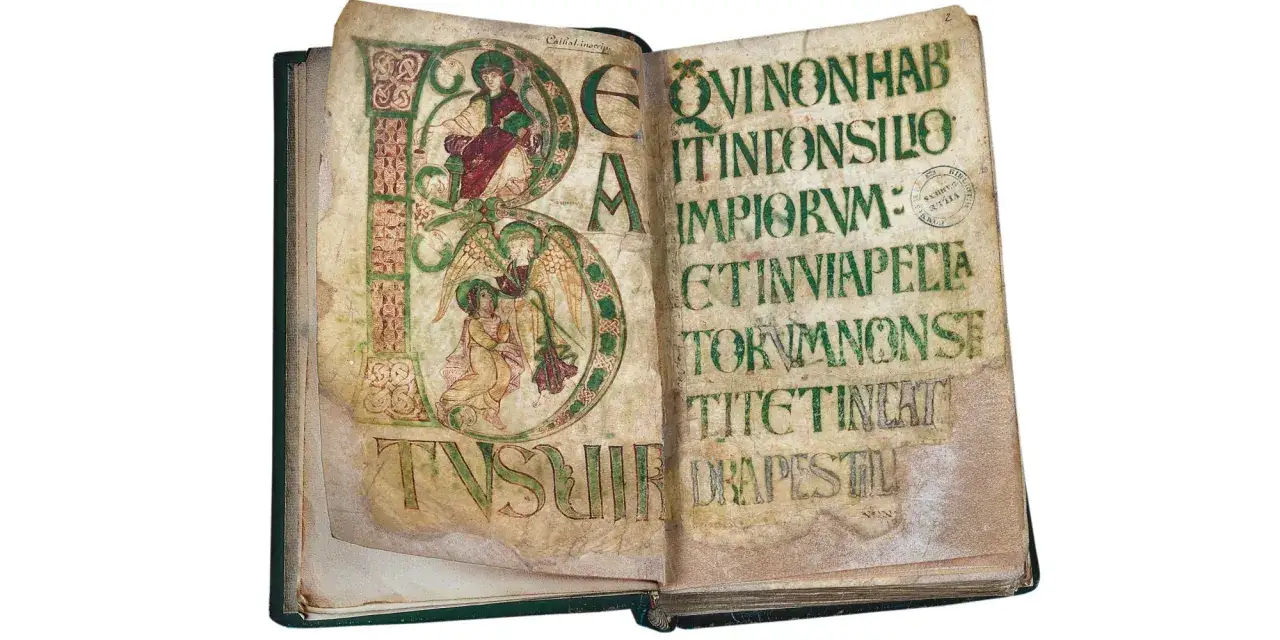 B E
A
TVS VIR
2
QVI NON HABI
IT IN CONSILIO
IMPIORVM:
ET IN VIA PECCA
TORVM NON STE
TIT ET IN CAT
DRA PESTIL